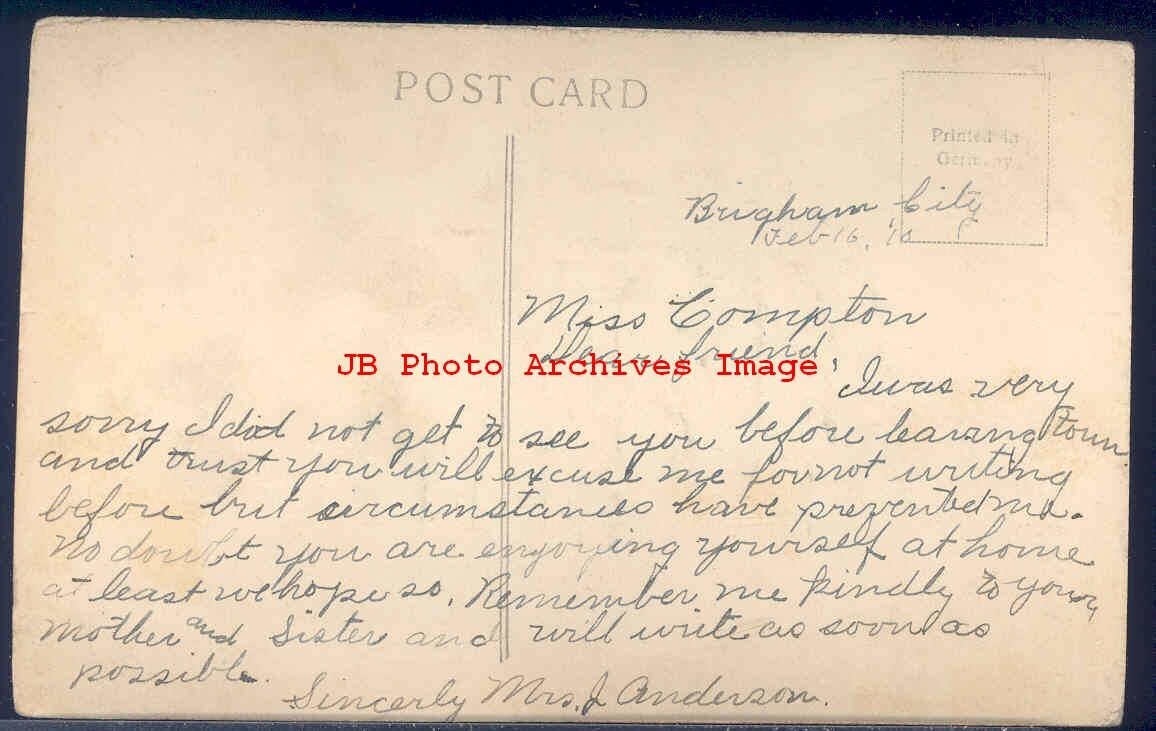 POST CARD
Printed in
Germany
Brigham City
Feb 16, 10
Miss Compton
Dear friend,
JB Photo Archives Image
I was very
sorry I did not get to see you before leaving town
and trust you will excuse me for not writing
before but circumstances have prevented me.
No doubt you are enjoying yourself at home
at least we hope so. Remember me kindly to your
mother and Sister and will write as soon as
possible.
Sincerly Mrs. J Anderson.